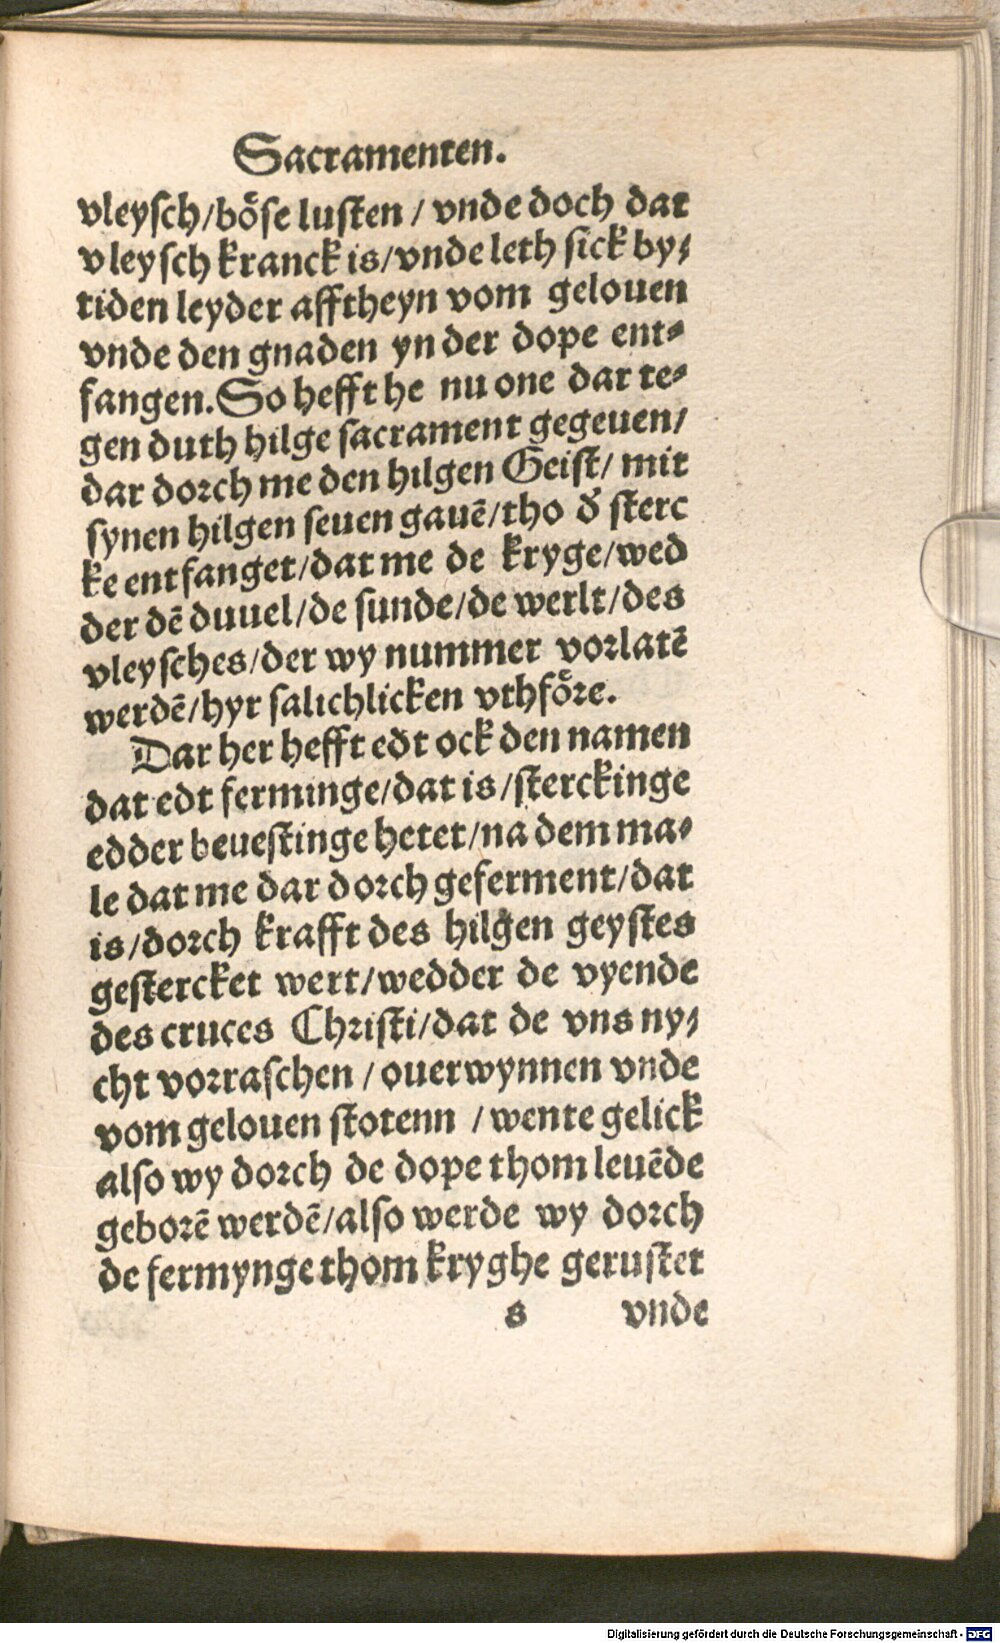 Sacramenten.
vleysch/böse lusten / vnde doch dat
vleysch kranck is/vnde leth sick by⸗
tiden leyder afftheyn vom gelouen
vnde den gnaden yn der dope ent⸗
fangen.So hefft he nu one dar te⸗
gen duth hilge sacrament gegeuen/
dar dorch me den hilgen Geist/ mit
synen hilgen seuen gauē/tho d̄ sterc
ke entfanget/dat me de kryge/wed
der dē duuel/de sunde/de werlt/des
vleysches/der wy nummer vorlatē
werdē/hyr salichlicken vthföre.
Dar her hefft edt ock den namen
dat edt ferminge/dat is/sterckinge
edder beuestinge hetet/na dem ma⸗
le dat me dar dorch geferment/dat
is/dorch krafft des hilgen geystes
gestercket wert/wedder de vyende
des cruces Christi/dat de vns ny⸗
cht vorraschen / ouerwynnen vnde
vom gelouen stotenn / wente gelick
also wy dorch de dope thom leuēde
geborē werdē/also werde wy dorch
de fermynge thom kryghe gerustet
s vnde
Digitalisierung gefördert durch die Deutsche Forschungsgemeinschaft - DFG